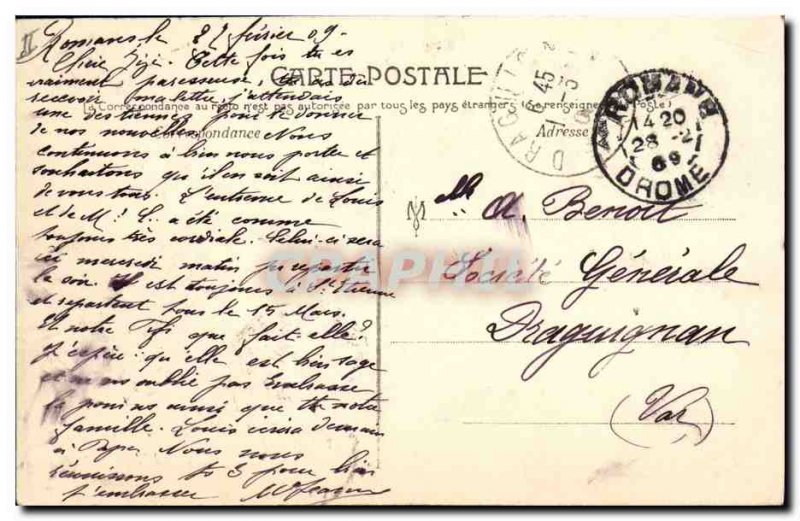 II
Romans le 27 février 09.
Chère Zizi. Cette fois tu es
vraiment paresseuse,
recevoir ma lettre j'attendais
une des tiennes pour te donner
de nos nouvelles. Nous
continuons à bien nous porter et
souhaitons qu'il en soit ainsi
de vous tous. L'entrevue de Louis
et de M! L. a été comme
toujours très cordiale. Celui-ci sera
ici mercredi matin pr repartir
le soir. Il est toujours à St Etienne
et repartent tous le 15 Mars.
Et notre Fifi que fait-elle?
J'espère qu'elle est bien sage
et ne ns oublie pas Embrasse
la pour ns ainsi que tte notre
famille. Louis écrira demain
à Papa. Nous nous
réunissons ts 3 pour bien
t'embrasser
CARTE POSTALE
La Correspondance au recto n'est pas autorisée par tous les pays étrangers (Se renseigner à la Poste)
Correspondance
Adresse
DRAGUIGNAN
6 45
1 -3
ROMANS
14 20
28 -2
09
DROME
M
elle A. Benoit
Société Générale
Draguignan
(Var)
CPAPHIL